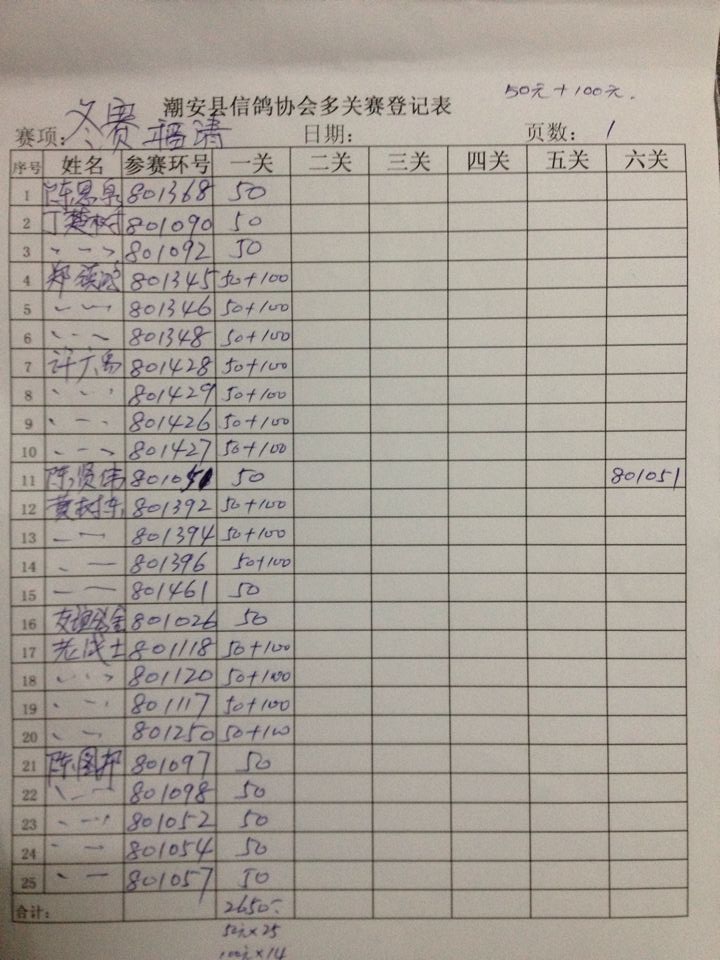 潮安县信鸽协会多关赛登记表
50元+100元.
赛项: 冬赛 福清 日期: 页数: 1
序号 姓名 参赛环号 一关 二关 三关 四关 五关 六关
1 陈恩泉 801368 50
2 丁楚树 801090 50
3 〃 〃 〃 801092 50
4 郑 801345 50+100
5 〃 〃 〃 801346 50+100
6 〃 〃 〃 801348 50+100
7 许广 801428 50+100
8 〃 〃 〃 801429 50+100
9 〃 〃 〃 801426 50+100
10 〃 〃 〃 801427 50+100
11 陈贤伟 801051 50 801051
12 黄树东 801392 50+100
13 〃 〃 801394 50+100
14 〃 〃 801396 50+100
15 〃 〃 801461 50
16 801026 50
17 老战士 801118 50+100
18 〃 〃 〃 801120 50+100
19 〃 〃 801117 50+100
20 〃 〃 801250 50+100
21 陈图邦 801097 50
22 〃 〃 〃 801098 50
23 〃 〃 〃 801052 50
24 〃 〃 801054 50
25 〃 〃 801057 50
合计: 2650-
50元×25
100元×14